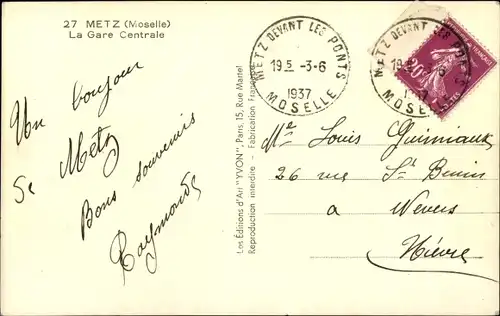 27 METZ (Moselle)
La Gare Centrale
Un bonjour
de Metz
Bons souvenirs
Raymonde
Les Editions d'Art "YVON", Paris, 15, Rue Martel
Reproduction interdite - Fabrication Française
METZ DEVANT LES PONTS
19 5 -3-6
1937
MOSELLE
METZ DEVANT LES PONTS
MOSELLE
20c
Louis
26 rue St Benin
a Nevers
Nièvre